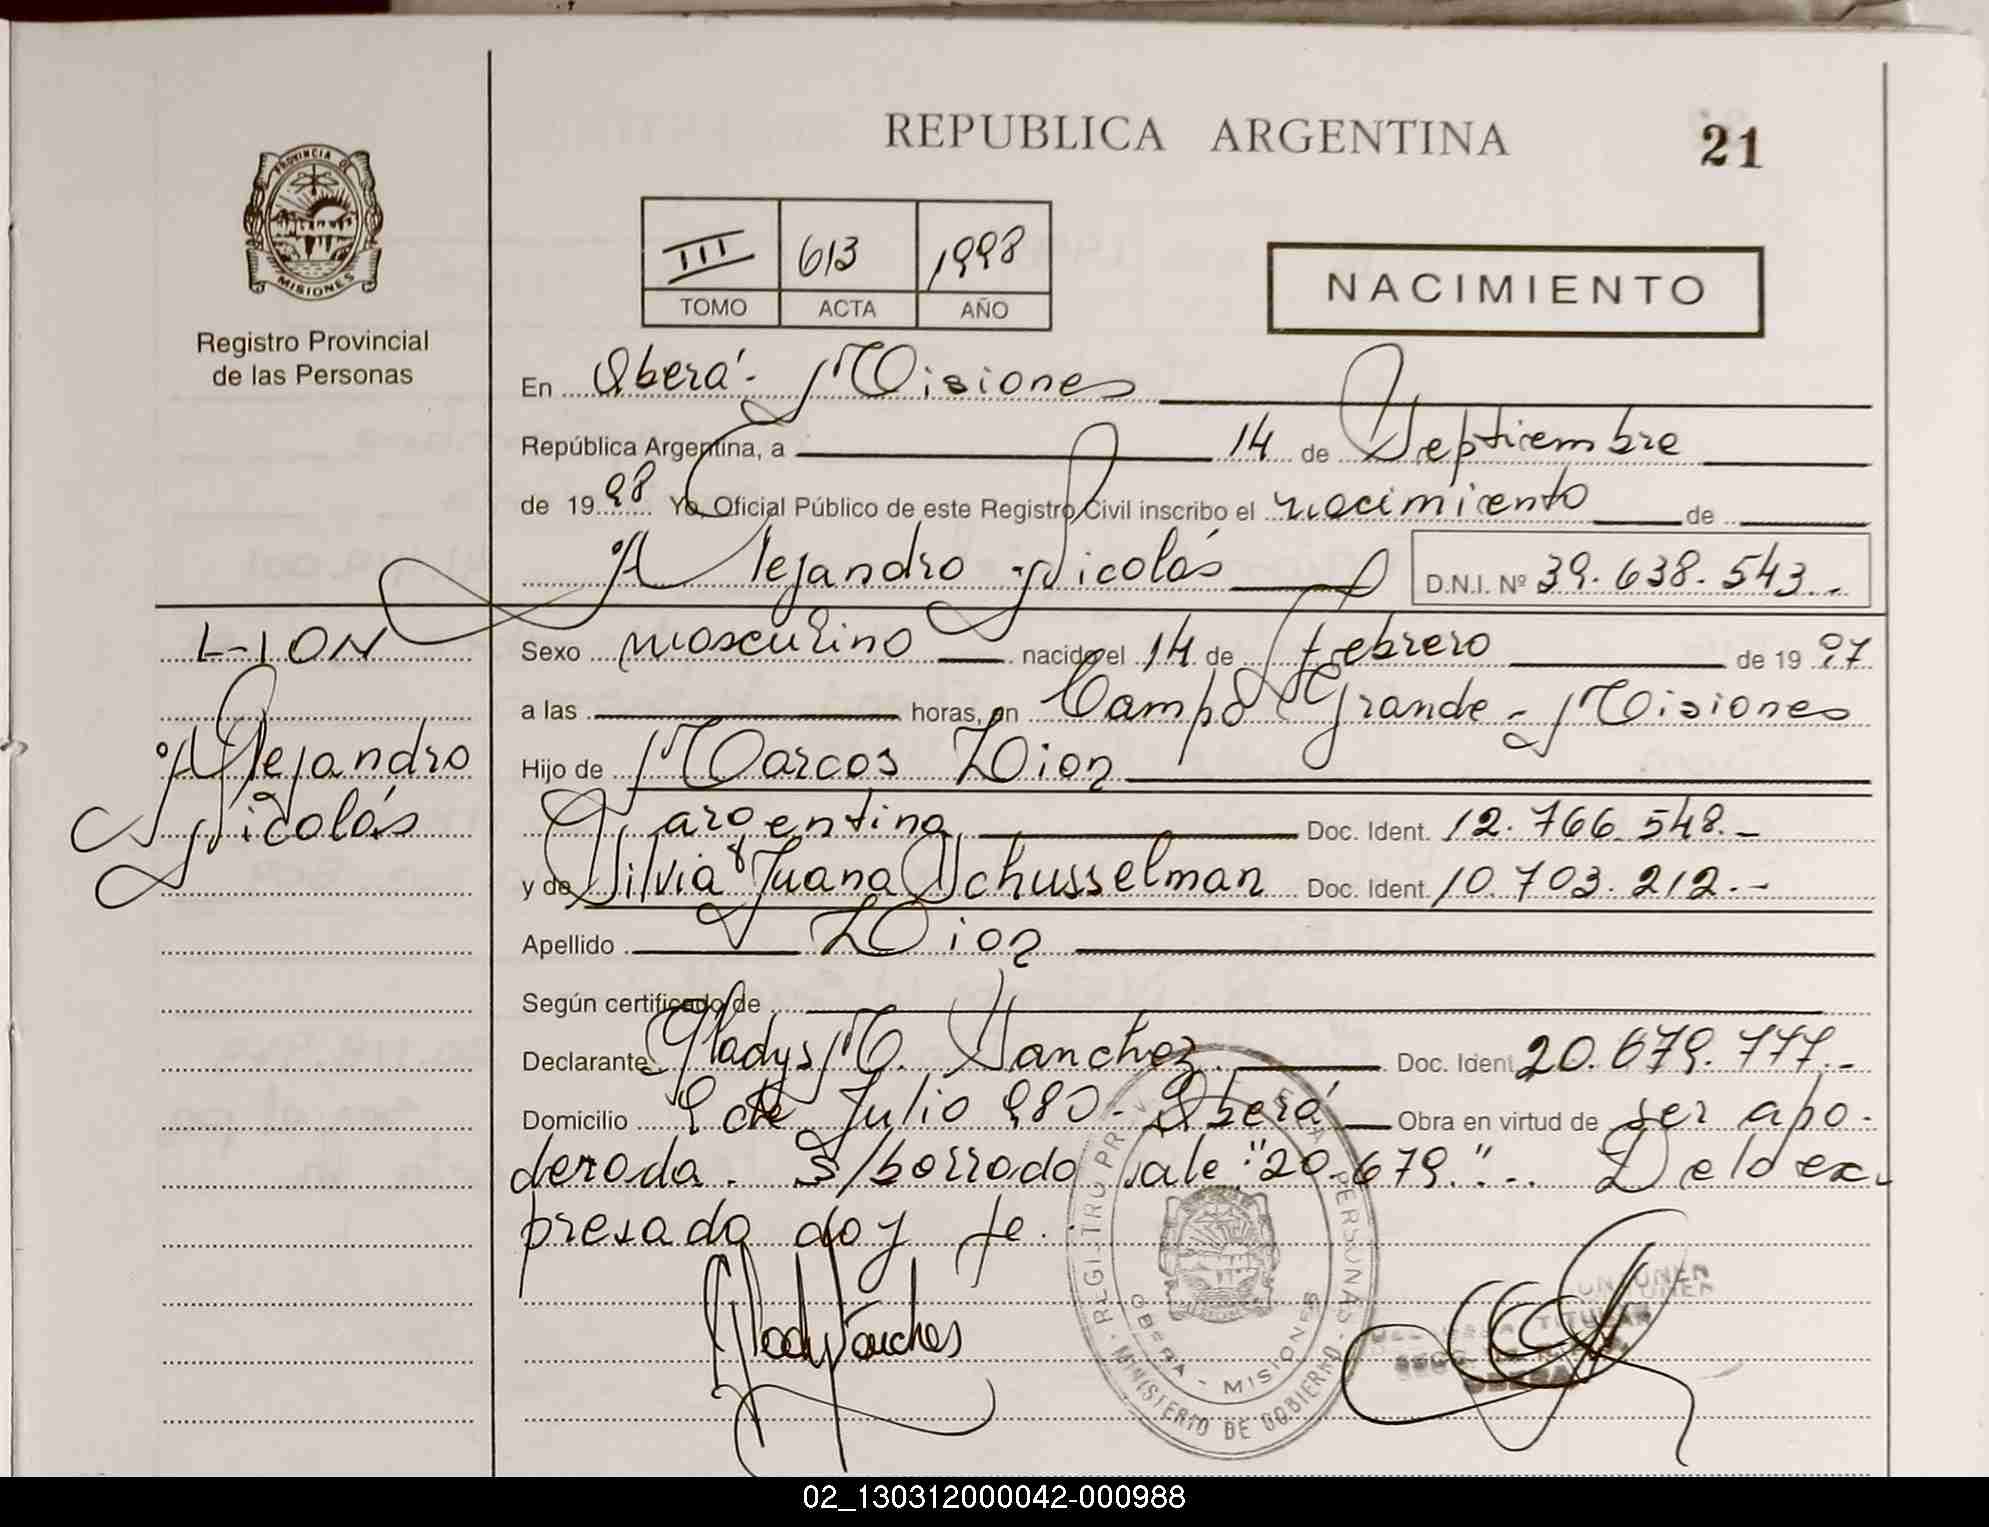 REPUBLICA ARGENTINA
21
PROVINCIA DE
MISIONES
Registro Provincial
de las Personas
III 613 1998
TOMO ACTA AÑO
NACIMIENTO
En Oberá - Misiones
República Argentina, a 14 de Septiembre
de 1998 Yo, Oficial Público de este Registro Civil inscribo el nacimiento de
Alejandro Nicolás D.N.I. Nº 39.638.543.-
LION
Alejandro
Nicolás
Sexo masculino nacido el 14 de febrero de 1997
a las horas, en Campo Grande - Misiones
Hijo de Marcos Lion
argentina Doc. Ident. 12.766.548.-
y de Silvia Juana Schusselman Doc. Ident. 10.703.212.-
Apellido Lion
Según certificado de
Declarante Gladys M. Sanchez. Doc. Ident. 20.679.777.-
Domicilio 9 de Julio 980 - Oberá Obra en virtud de ser apo-
derada. S/borrado vale: "20.679.".. De lo ex-
presado doy fe.
Gladys Sanches
REGISTRO PROV. DE LAS PERSONAS
OBERA - MISIONES
MINISTERIO DE GOBIERNO
TITULAR
OBERA
02_130312000042-000988